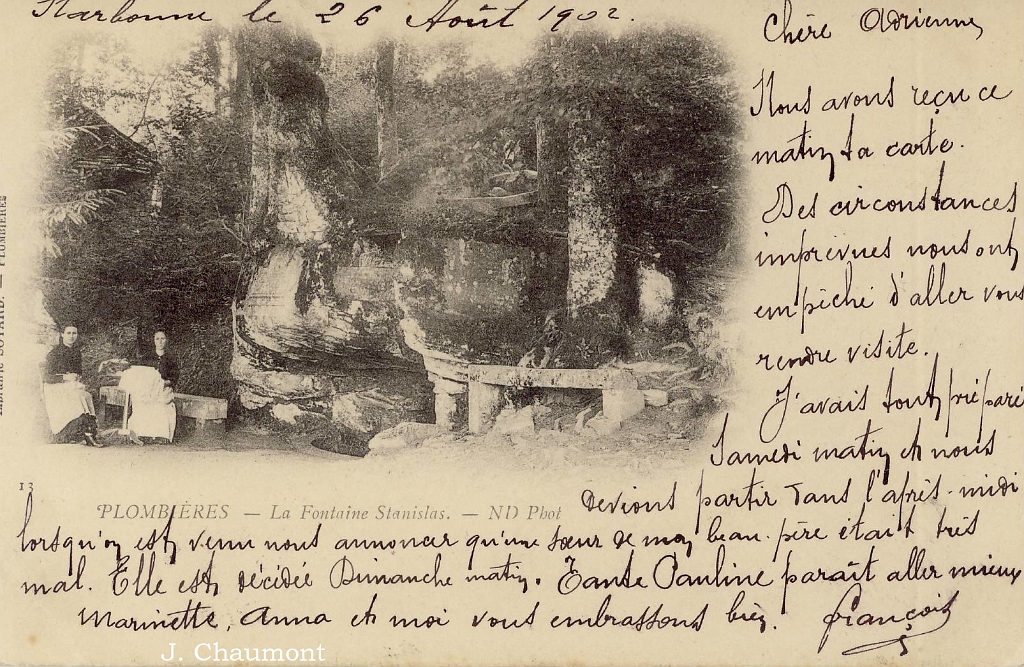 Narbonne le 26 Août 1902.
Chère Adrienne,
Nous avons reçu ce
matin ta carte.
Des circonstances
imprévues nous ont
empêché d'aller vous
rendre visite.
J'avais tout préparé
Samedi matin et nous
devions partir dans l'après-midi
lorsqu'on est venu nous annoncer qu'une sœur de mon beau-père était très
mal. Elle est décédée Dimanche matin. Tante Pauline paraît aller mieux
Marinette, Anna et moi vous embrassons bien. François
13
PLOMBIÈRES — La Fontaine Stanislas. — ND Phot
Librairie SOYARD. — PLOMBIÈRES
J. Chaumont